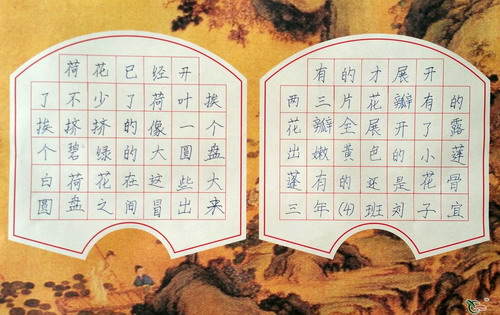 荷花已经开
了不少了荷叶挨
挨挤挤的像一个
个碧绿的大圆盘
白荷花在这些大
圆盘之间冒出来
有的才展开
两三片花瓣有的
花瓣全展开了露
出嫩黄色的小莲
蓬有的还是花骨
三年(4)班刘子宜